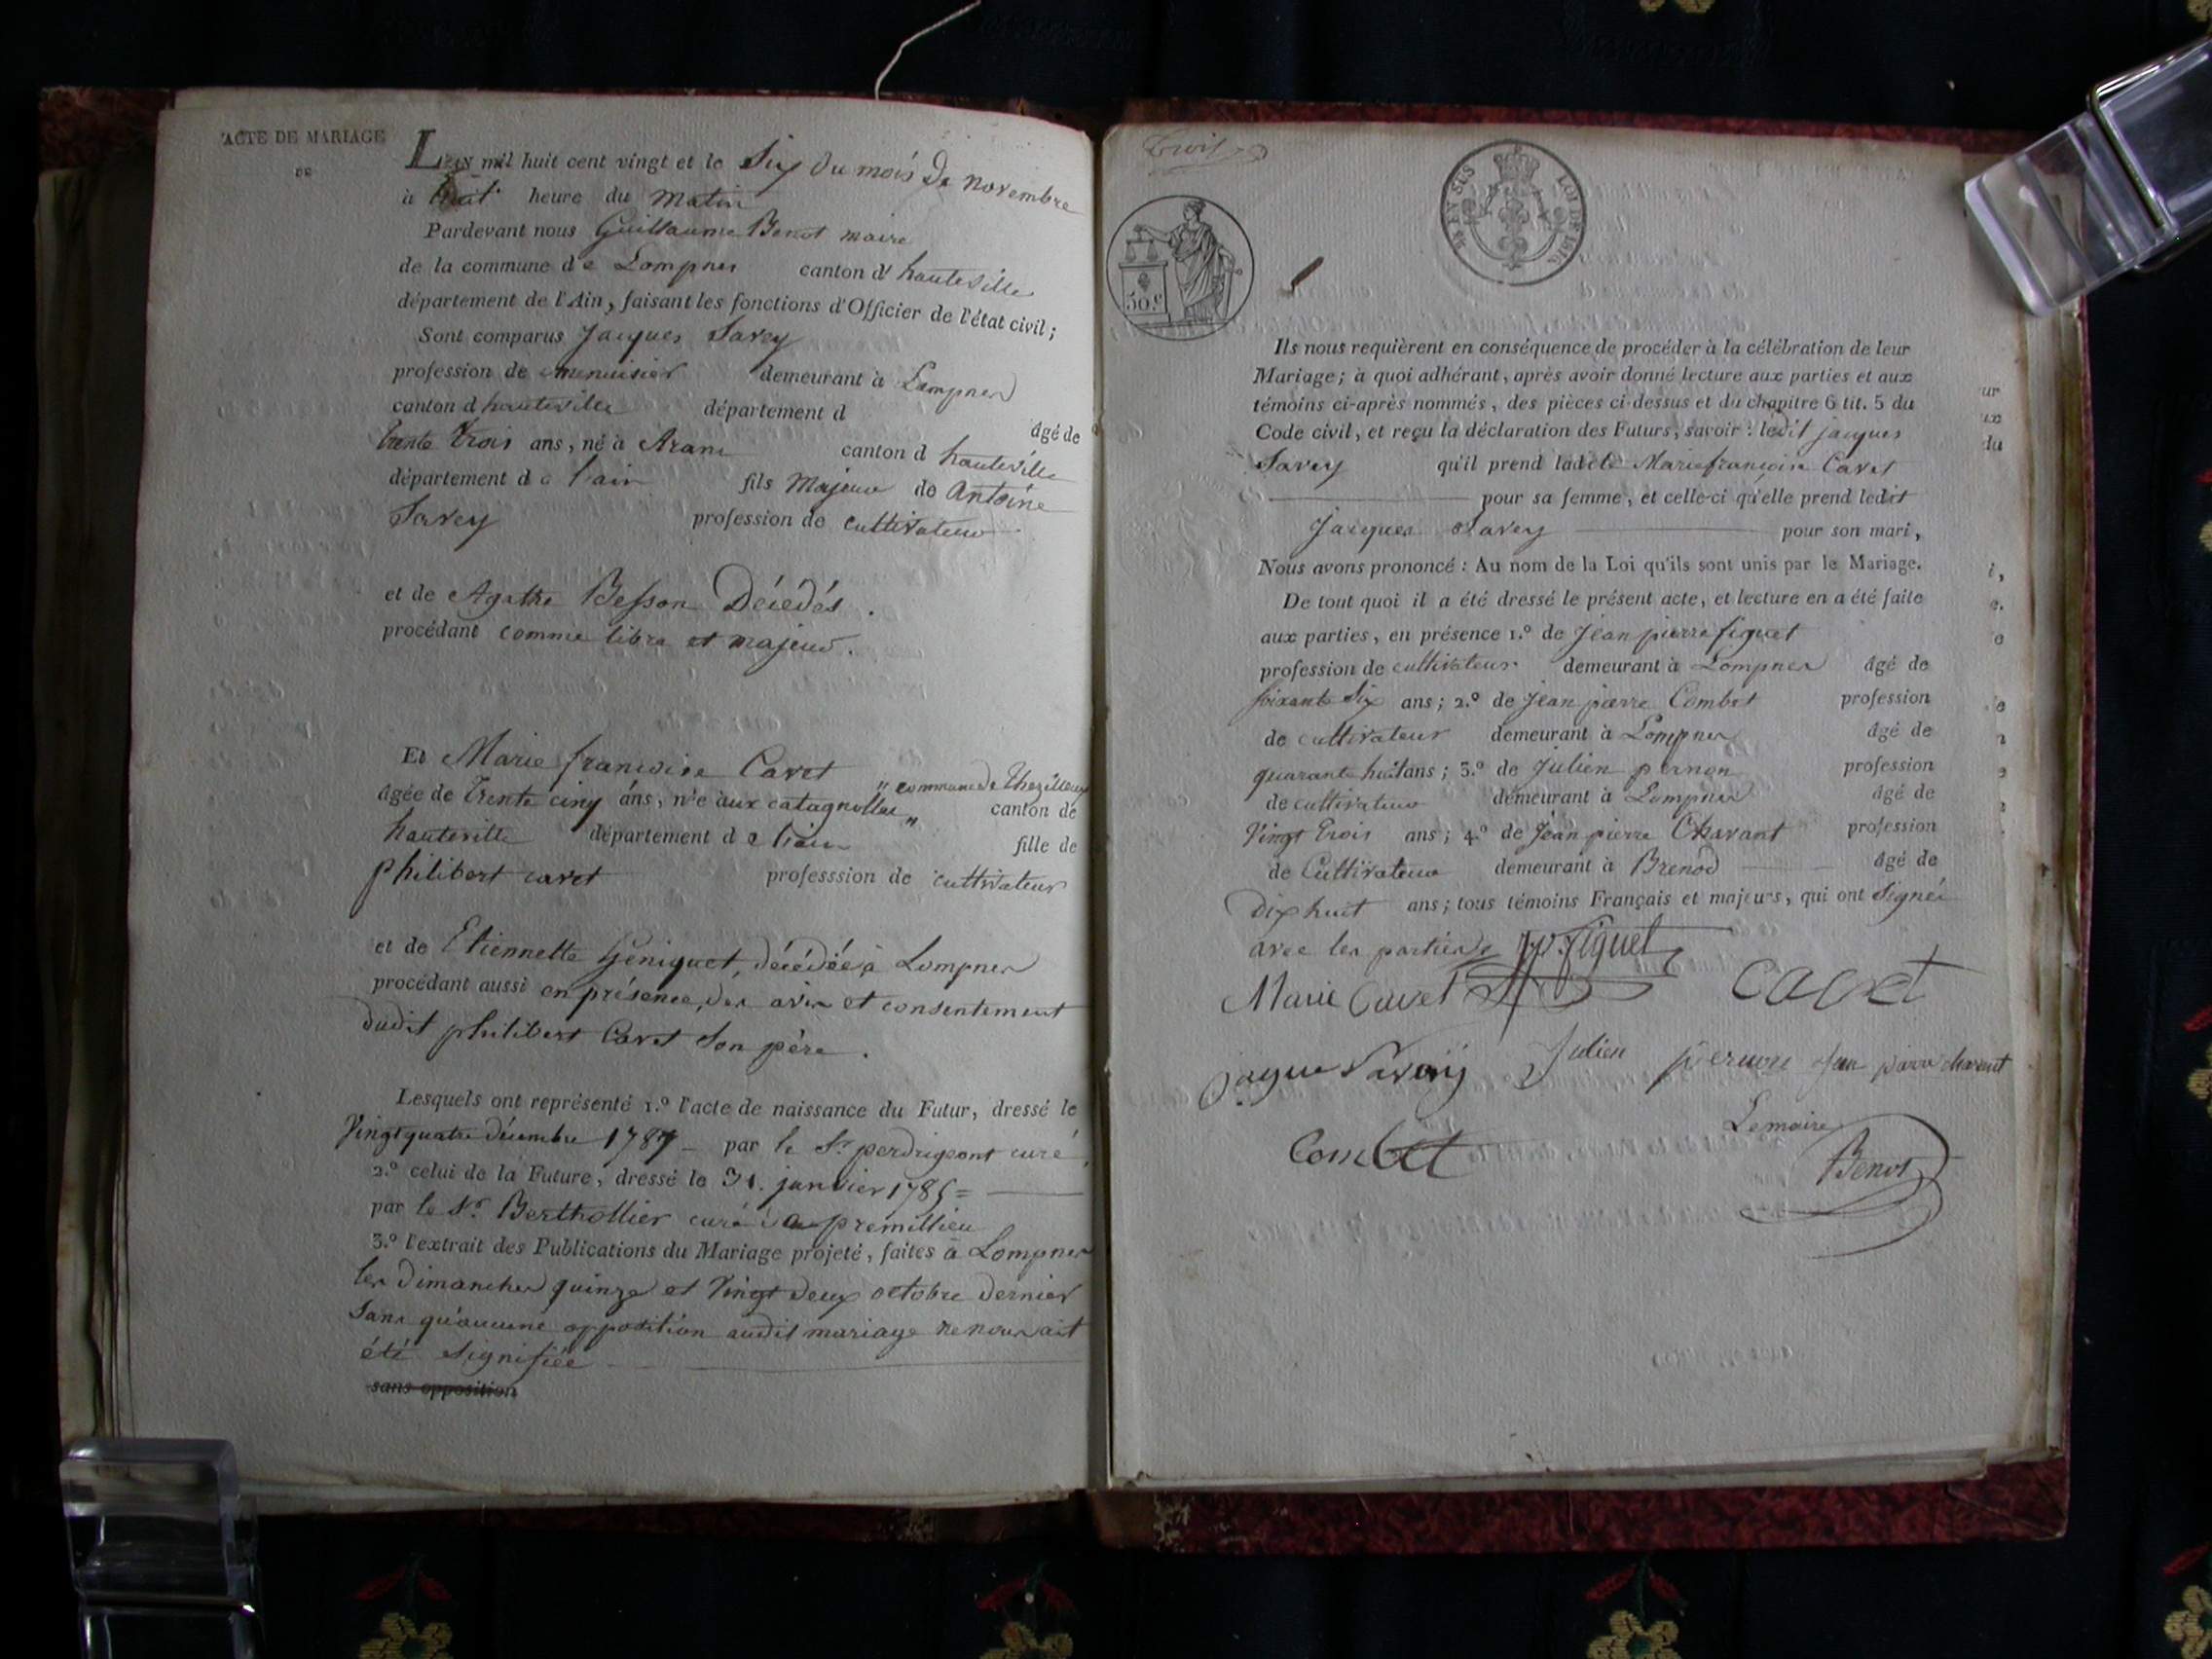 ACTE DE MARIAGE
DE
L'AN mil huit cent vingt et le Six du mois de novembre
à huit heure du matin
Pardevant nous Guillaume Benot maire
de la commune de Lompnes canton d'hauteville
département de l'Ain, faisant les fonctions d'Officier de l'état civil;
Sont comparus Jacques Savey
profession de menuisier demeurant à Lompnes
canton d hauteville département d âgé de
trente trois ans, né à Aranc canton d hauteville
département d e l'ain fils Majeur de Antoine
Savey profession de cultivateur
et de Agathe Besson Décédés.
procédant comme libre et majeur.
Et Marie françoise Cavet
"commune de thezillieux
âgée de trente cinq ans, née aux catagnolles" canton de
hauteville département d e l'ain fille de
philibert cavet professsion de cultivateur
et de Etiennette Geniquet, décédée à Lompnes
procédant aussi en présence, des avis et consentement
dudit philibert Cavet Son père.
Lesquels ont représenté 1.º l'acte de naissance du Futur, dressé le
Vingt quatre décembre 1787 - par le Sr. perdrigeont curé,
2.º celui de la Future, dressé le 31. janvier 1785 =
par le Sr. Berthollier curé à premillieu
3.º l'extrait des Publications du Mariage projeté, faites à Lompnes
les dimanches quinze et Vingt deux octobre dernier
Sans qu'aucune opposition audit mariage ne nous ait
été Signifiée
sans opposition
trois
LOI DE 1816
50.c
Ils nous requièrent en conséquence de procéder à la célébration de leur
Mariage; à quoi adhérant, après avoir donné lecture aux parties et aux
témoins ci-après nommés, des pièces ci-dessus et du chapitre 6 tit. 5 du
Code civil, et reçu la déclaration des Futurs, savoir: ledit jacques
Savey qu'il prend ladite Marie françoise Cavet
pour sa femme, et celle-ci qu'elle prend ledit
Jacques Savey pour son mari,
Nous avons prononcé: Au nom de la Loi qu'ils sont unis par le Mariage.
De tout quoi il a été dressé le présent acte, et lecture en a été faite
aux parties, en présence 1.º de Jean pierre figuet
profession de cultivateur demeurant à Lompnes âgé de
soixante Six ans; 2.º de Jean pierre Combet profession
de cultivateur demeurant à Lompnes âgé de
quarante huit ans; 3.º de Julien pernon profession
de cultivateur demeurant à Lompnes âgé de
Vingt trois ans; 4.º de Jean pierre Chavant profession
de Cultivateur demeurant à Brenod âgé de
Dix huit ans; tous témoins Français et majeurs, qui ont Signés
avec les parties jp. figuet
Marie Cavet Cavet
jaque Savey Julien pernon Jean pierre chavant
Combet Le maire
Benot